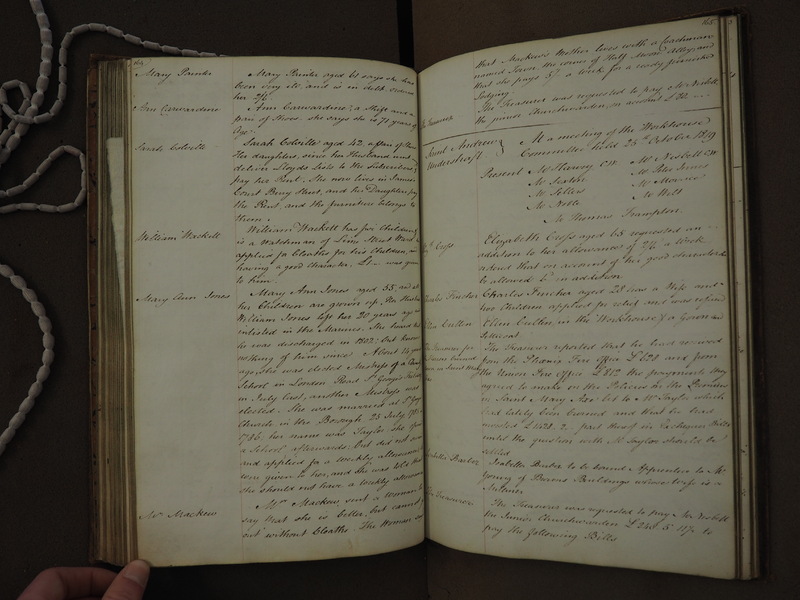 164
Mary Painter
Mary Painter aged 61 says she has
been very ill, and is in debt
her 2/6
Ann Carwardine
Ann Carwardine, a Shift and a
pair of Shoes. she says she is 71 years of
Age.
Sarah Colville
Sarah Colville aged 42,
Her daughters, since her Husband
deliver Lloyds Lists to the Subscribers,
pay her Rent. She now lives in James
Court Bury Street, and her Daughters pay
the Rent, and the furniture belongs to
them.
William Wackett
William Wackett has five Children,
is a Watchman of Lime Street Ward
applies for Cloaths for his Children,
having a good character, £1.. was given
to him.
Mary Ann Jones
Mary Ann Jones aged 55,
her Children are grown up. Her Husband
William Jones left her 20 years ago
enlisted in the Marines. She heard
he was discharged in 1802, but knows
nothing of him since. About 14 years
ago, she was elected Mistress of a
School in London Road St Georges Fields
in July last, another Mistress was
elected. She was married at St Georges
Church in the Borough 25 July
1786, her name was Taylor she
a School afterwards, but did not
and applied for a weekly allowance
were given to her, and she was told that
she should not have a weekly allowance
Mrs Mackew
Mrs Mackew sent a woman to
say that she is better, but cannot
out without Cloaths. The Woman
165
that Mackew's Mother lives with a
named Town the corner of Half Moon Alley, and
that she pays 5/ a Week for a ready furnished
Lodging.
The Treasurer
The Treasurer was requested to pay Mr Nesbitt
the junior Churchwarden, on account £
Saint Andrew
Undershaft
At a meeting of the Workhouse
Committee held 25th October 1819
Present Mr Harvey C.W. Mr Nesbitt C.W.
Mr Sexton Mr Peter Jones
Mr Sellers Mr Maurice
Mr Noble Mr Witt
Mr Thomas Frampton
Elizth Cross
Elizabeth Cross aged 65 requested an
addition to her allowance of 2/6 a week.
ordered that on account of her good character
be allowed 6d in addition
Charles Fincher
Charles Fincher aged 28 has a Wife and
two Children applied for relief and was refused
Ellen Cullen
Ellen Cullen, in the Workhouse, a Gown and
Petticoat
The Treasurer for
Premises burned
down in Saint Mary
Axe
The Treasurer reported that he had received
from the Phoenix Fire Office £628 and from
the Union Fire Office £812 the payment they
agreed to make on the Policies on the Premises
in Saint Mary Axe let to Mr Taylor which
had lately been burned and that he had
invested £1428.2. part thereof in Exchequer Bills
until the question with Mr Taylor should be
settled
Isabella Barbie
Isabella Barbie to be bound Apprentice to Mr
Young of Barons Buildings whose wife is a
The Treasurer
The Treasurer was requested to pay Mr Nesbitt
the Junior Churchwarden £245. 5. 11¾ to
pay the following Bills